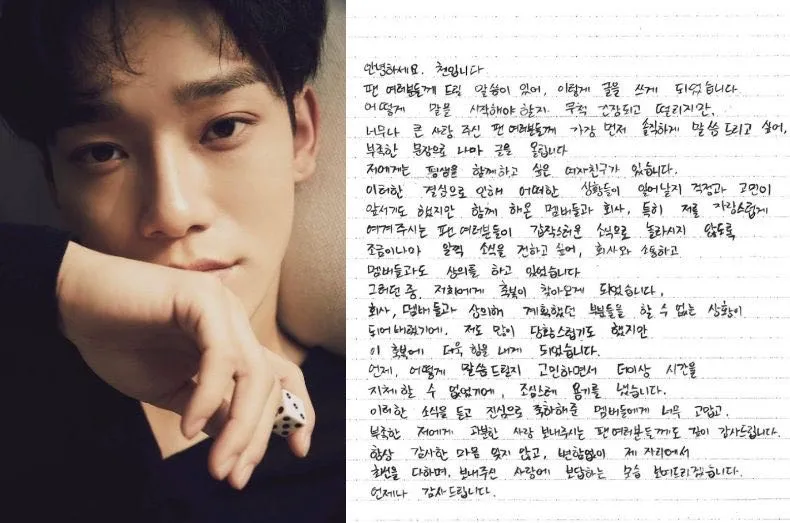 안녕하세요. 첸입니다
팬 여러분들께 드릴 말씀이 있어, 이렇게 글을 쓰게 되었습니다
어떻게 말을 시작해야 할지 무척 긴장되고 떨리지만,
너무나 큰 사랑 주신 팬 여러분들께 가장 먼저 솔직하게 말씀드리고 싶어,
부족한 문장으로 나마 글을 올립니다
저에게는 평생을 함께하고 싶은 여자친구가 있습니다.
이러한 결심으로 인해 어떠한 상황들이 일어날지 걱정과 고민이
앞서기도 했지만 함께 해온 멤버들과 회사, 특히 저를 자랑스럽게
여겨주시는 팬 여러분들이 갑작스러운 소식으로 놀라시지 않도록
조금이나마 일찍 소식을 전하고 싶어, 회사와 소통하고
멤버들과도 상의를 하고 있었습니다
그러던 중, 저희에게 축복이 찾아오게 되었습니다.
회사, 멤버들과 상의해 계획했던 부분들을 할 수 없는 상황이
되어버렸기에, 저도 많이 당황스럽기도 했지만
이 축복에 더욱 힘을 내게 되었습니다.
언제, 어떻게 말씀드릴지 고민하면서 더이상 시간을
지체할 수 없었기에, 조심스레 용기를 냈습니다.
이러한 소식을 듣고 진심으로 축하해준 멤버들에게 너무 고맙고.
부족한 저에게 과분한 사랑 보내주시는 팬 여러분들께도 깊이 감사드립니다.
항상 감사한 마음 잊지 않고, 변함없이 제 자리에서
최선을 다하며, 보내주신 사랑에 보답하는 모습 보여드리겠습니다.
언제나 감사드립니다.